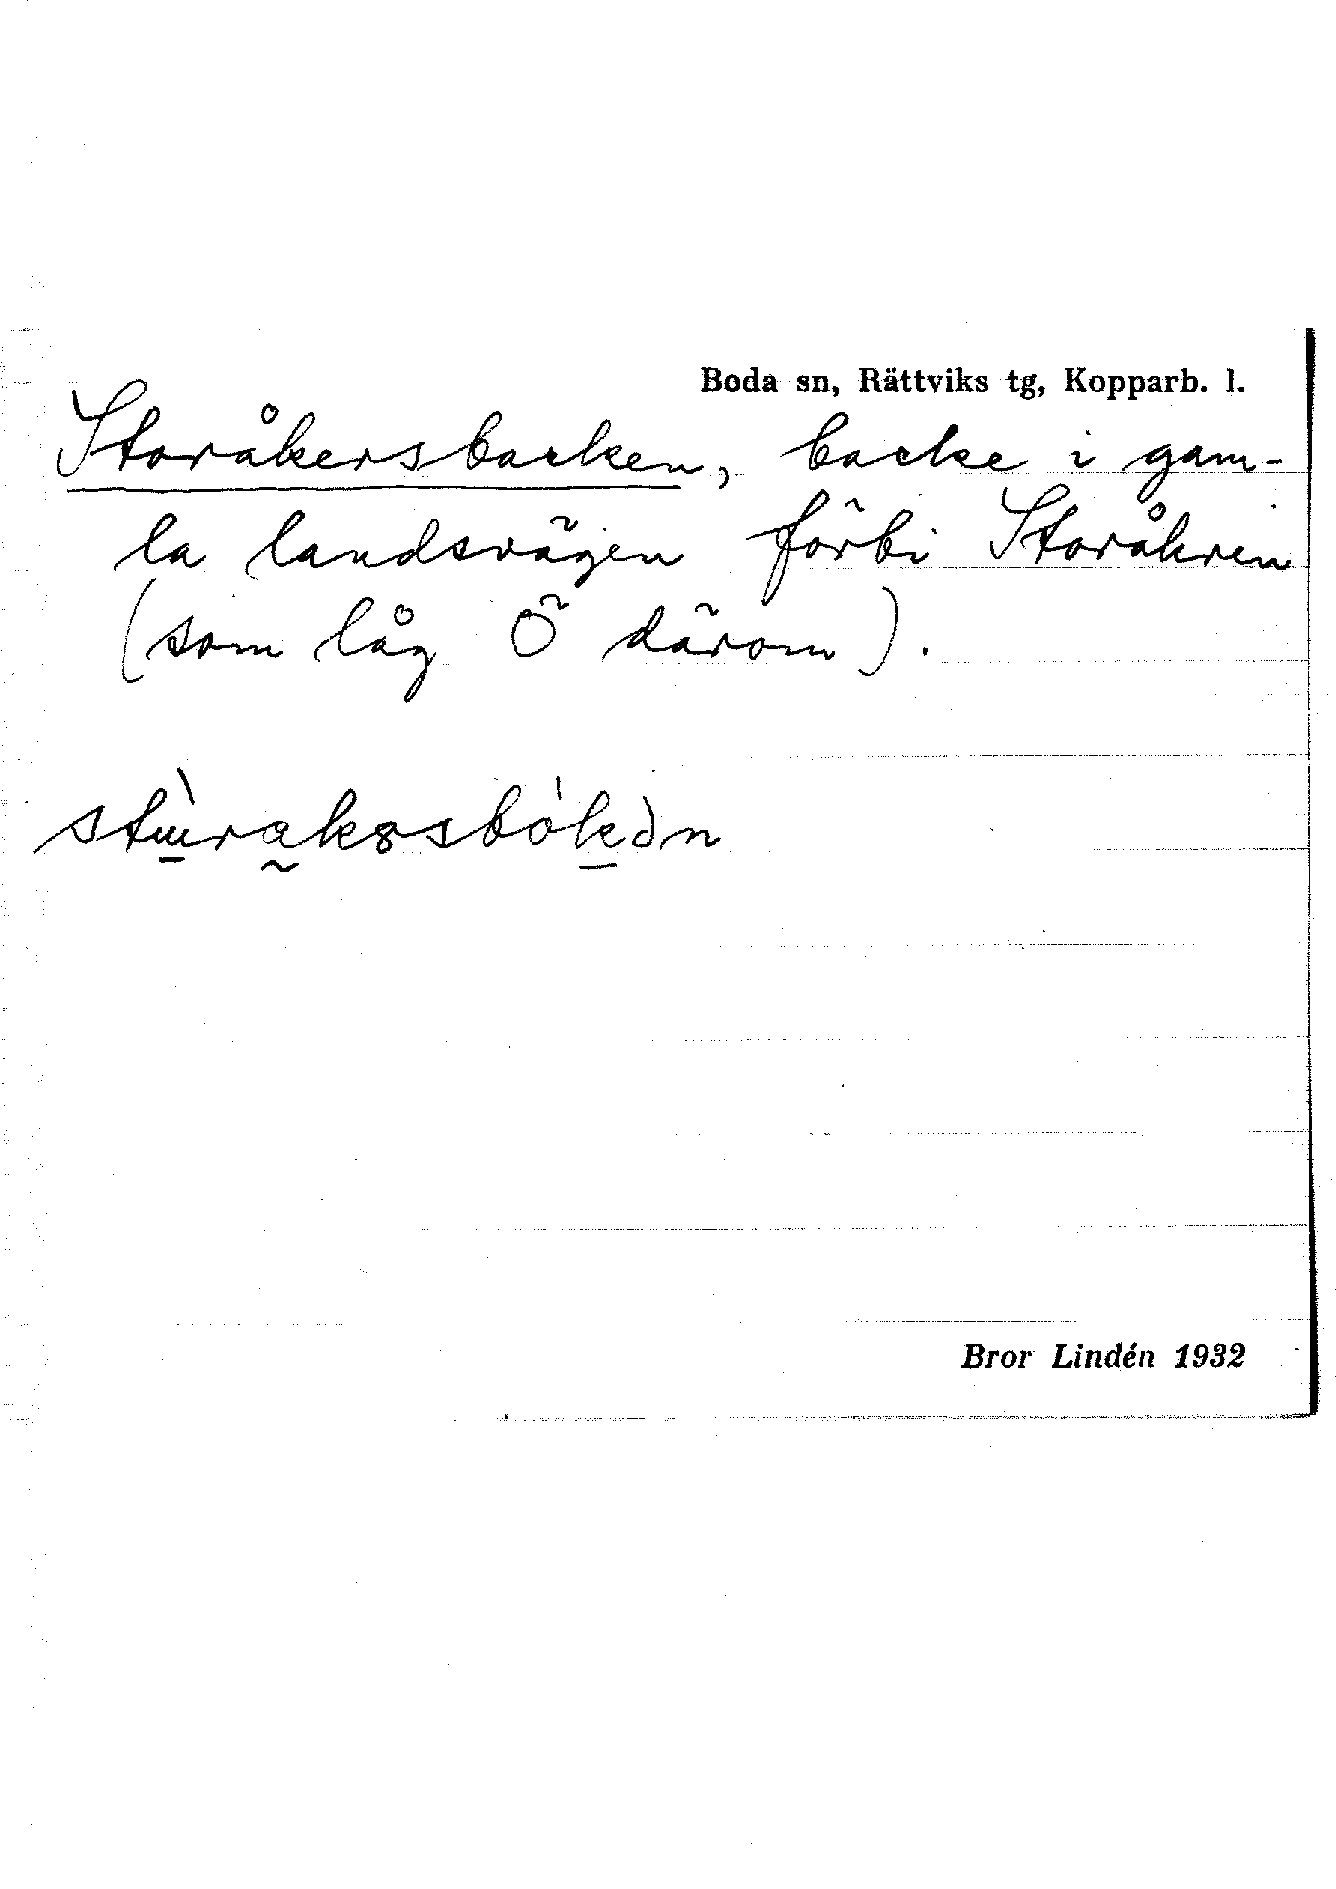 Boda sn, Rättviks tg, Kopparb. l.
Storåkersbacken, backe i gam-
la landsvägen förbi Storåkren
(som låg Ö därom).
Bror Lindén 1932